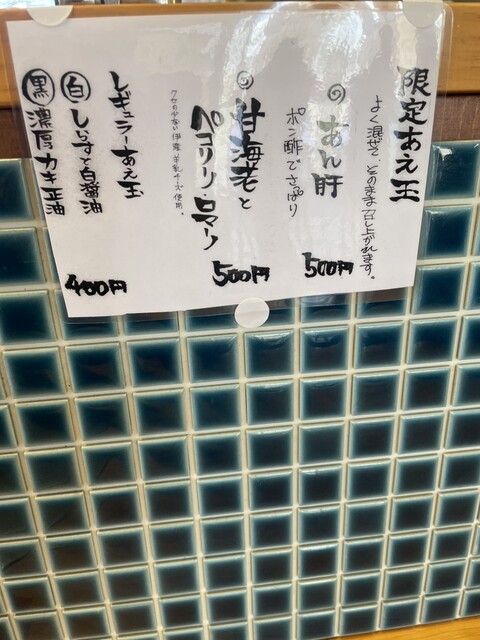 限定あえ玉
よく混ぜて、そのまま召し上がれます。
あん肝
ポン酢でさっぱり
500円
甘海老と
ペコリーノ・ロマーノ
クセの少ない伊産 羊乳チーズ使用。
500円
レギュラーあえ玉
白 しらすと白醤油
黒 濃厚カキ正油
400円